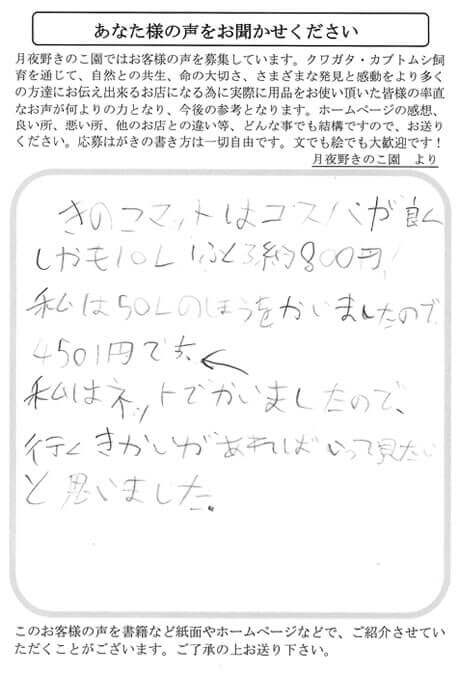 あなた様の声をお聞かせください
月夜野きのこ園ではお客様の声を募集しています。クワガタ・カブトムシ飼
育を通じて、自然との共生、命の大切さ、さまざまな発見と感動をより多く
の方達にお伝え出来るお店になる為に実際に用品をお使い頂いた皆様の率直
なお声が何よりの力となり、今後の参考となります。ホームページの感想、
良い所、悪い所、他のお店との違い等、どんな事でも結構ですので、お送り
ください。応募はがきの書き方は一切自由です。文でも絵でも大歓迎です！
月夜野きのこ園　より
きのこマットはコスパが良く
しかも10L 1ふくろ約800円!
私は50Lのほうをかいましたので
4501円です。
私はネットでかいましたので、
行くきかいがあればいって見たい
と思いました。
このお客様の声を書籍など紙面やホームページなどで、ご紹介させてい
ただくことがございます。ご了承の上お送り下さい。